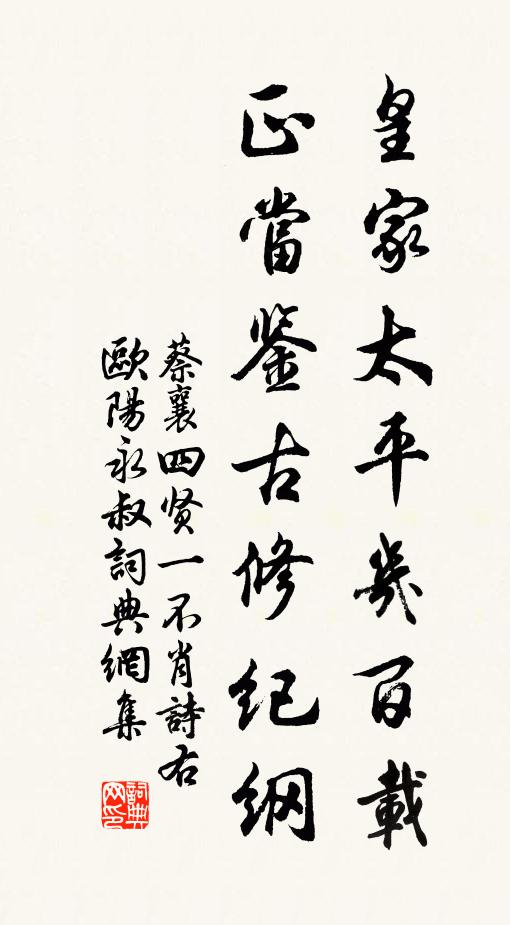 皇家太平幾百載
正當鉴古修纪纲
蔡襄四贤一不肖詩右
歐陽永叔詞典網集
詞典
网印